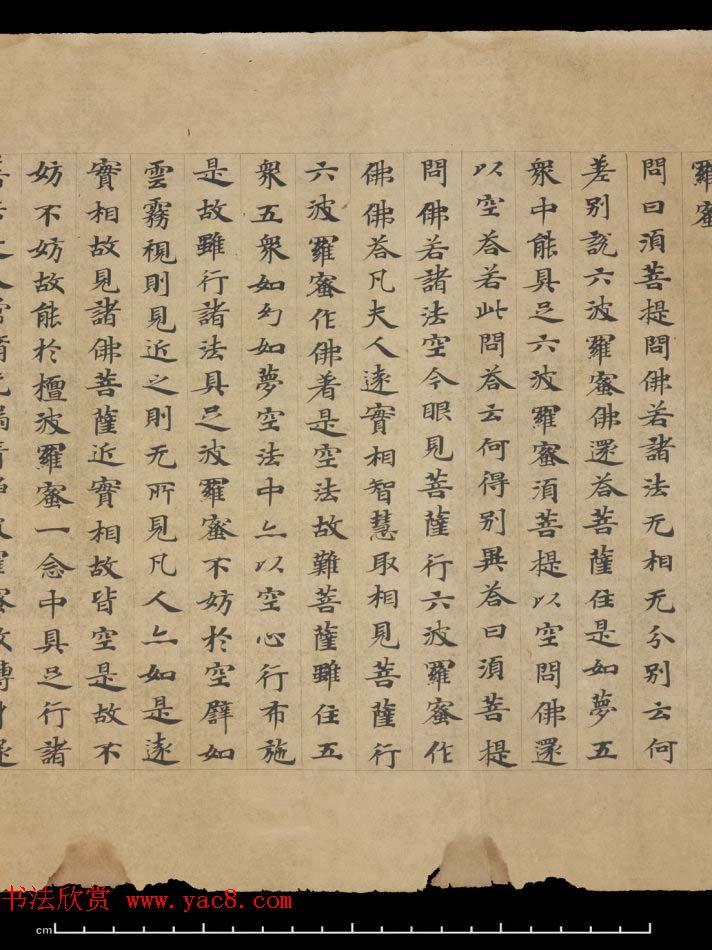 羅蜜
問曰須菩提問佛若諸法无相无分別云何
差別說六波羅蜜佛還荅菩薩住是如夢五
衆中能具足六波羅蜜須菩提以空問佛還
以空荅若此問荅云何得別異荅曰須菩提
問佛若諸法空今眼見菩薩行六波羅蜜作
佛佛荅凡夫人遠實相智慧取相見菩薩行
六波羅蜜作佛著是空法故難菩薩雖住五
衆五衆如幻如夢空法中亦以空心行布施
是故雖行諸法具足波羅蜜不妨於空譬如
雲霧視則見近之則无所見凡人亦如是遠
實相故見諸佛菩薩近實相故皆空是故不
妨不妨故能於檀波羅蜜一念中具足行諸
书法欣赏 www.yac8.com
cm